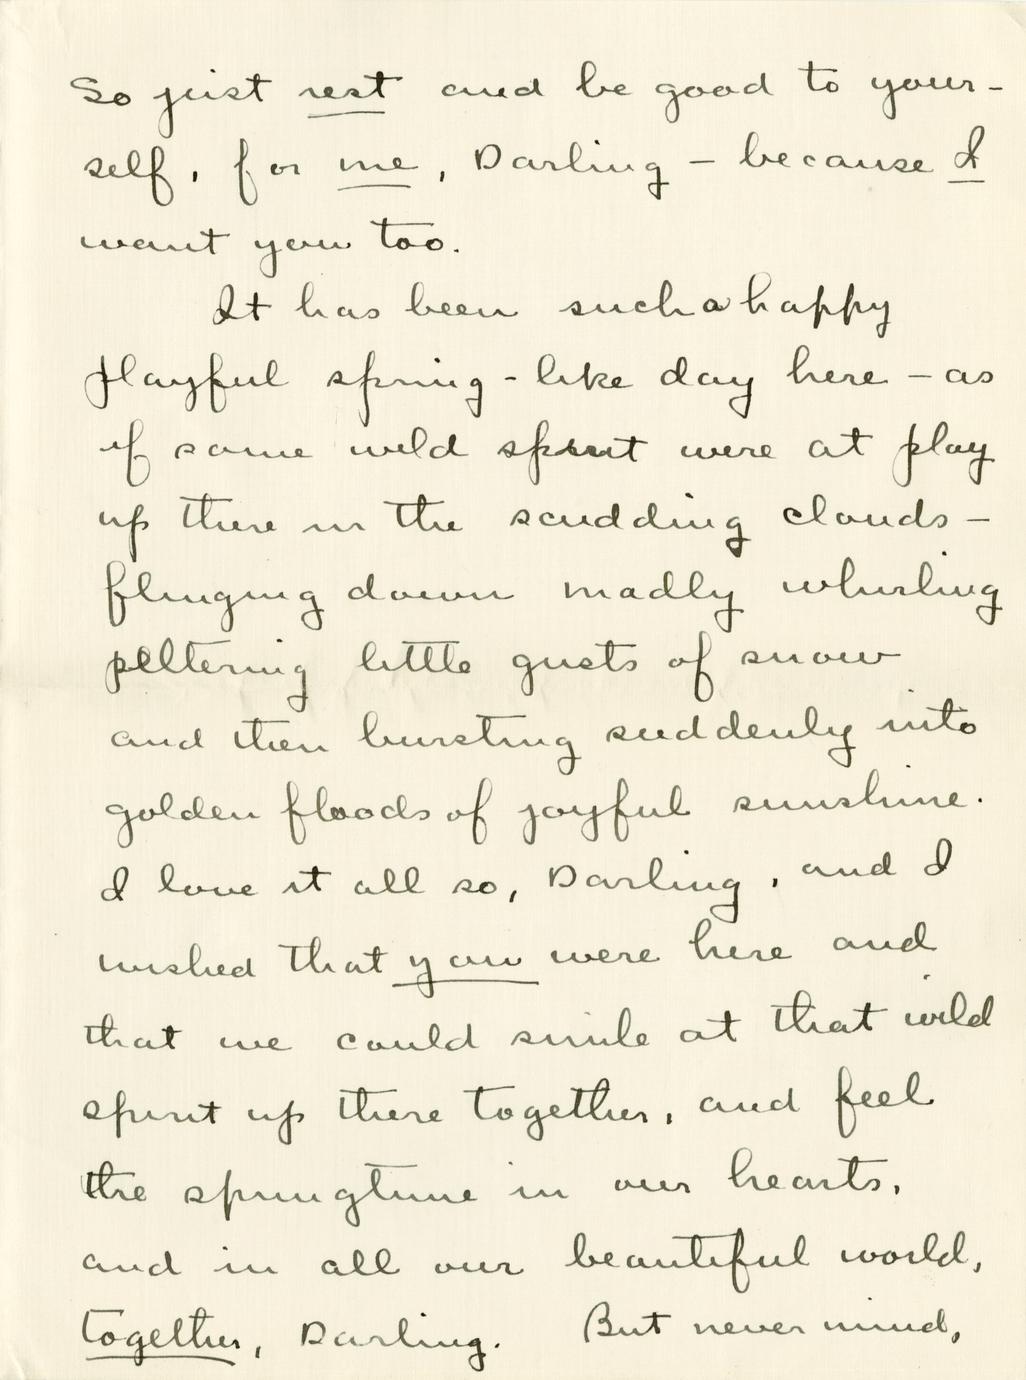 So just rest and be good to your-
self, for me, Darling - because I
want you too.
It has been such a happy
playful spring-like day here - as
if some wild spirit were at play
up there in the scudding clouds -
flinging down madly whirling
peltering little gusts of snow
and then bursting suddenly into
golden floods of joyful sunshine.
I love it all so, Darling, and I
wished that you were here and
that we could smile at that wild
spirit up there together, and feel
the springtime in our hearts,
and in all our beautiful world,
together, Darling. But never mind,